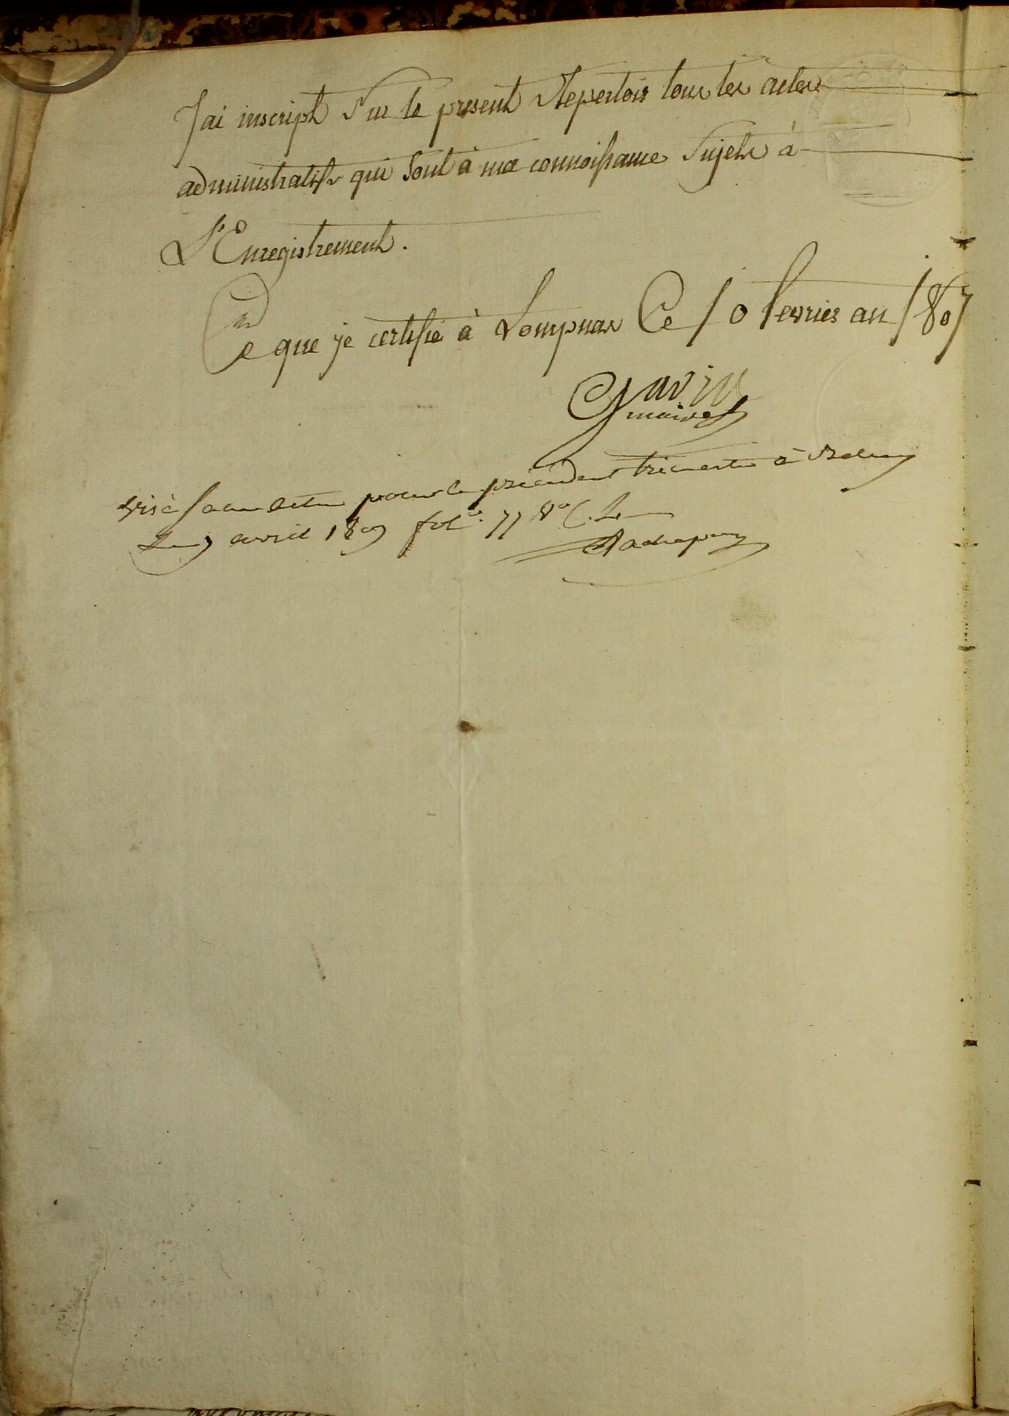 J'ai inscript Sur le present Repertoir tous les actes
administratifs qui Sont à ma connoissance Sujets à
L'Enregistrement.
Ce que je certifie à Lompnas Ce 10 fevrier an 1807
maire
visé sans acte pour le précédent trimestre à
Le 7 avril 1807 fol° 77 V° C.